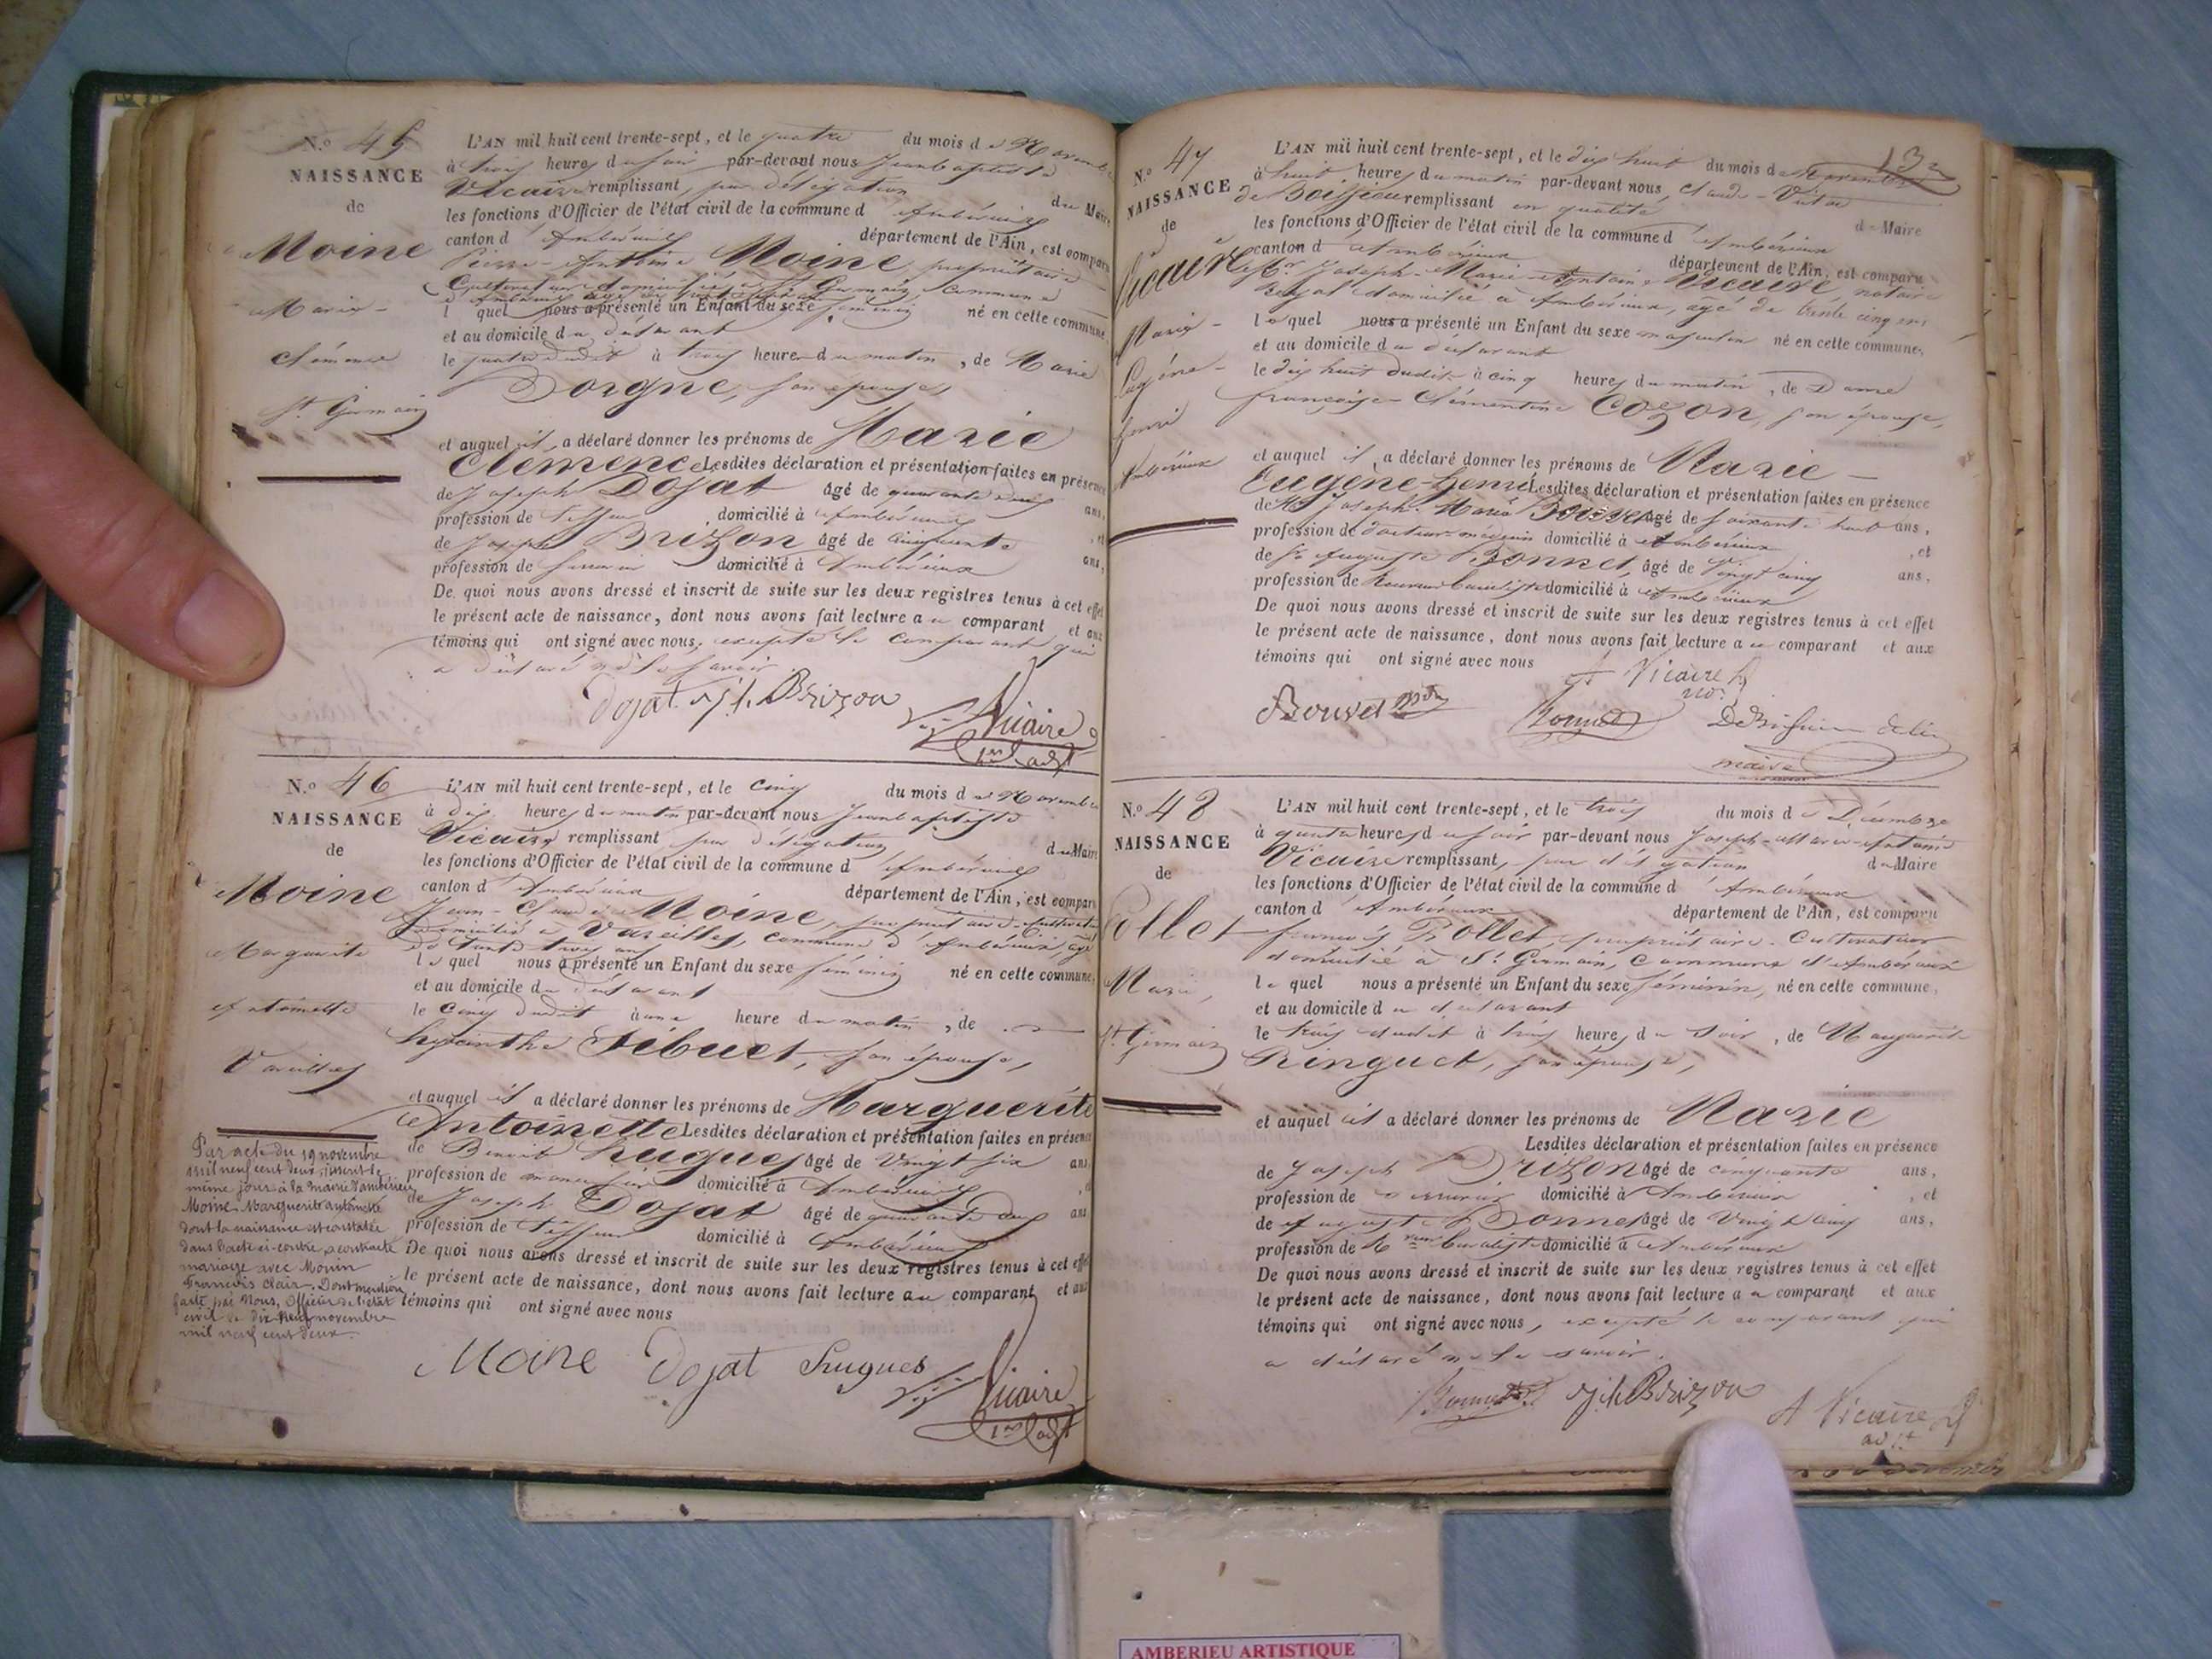 N.º 45
NAISSANCE
de
Moine
Marie-
Clémence
St Germain
L'AN mil huit cent trente-sept, et le quatre du mois de Novembre
à trois heures du soir par-devant nous Jean baptiste
Vicaire remplissant, par délégation du Maire
les fonctions d'Officier de l'état civil de la commune d'Ambérieux
canton d'Ambérieux département de l'Ain, est comparu
Pierre-Anthime Moine, propriétaire
Cultivateur domicilié à St Germain, commune
d'Ambérieux âgé de
lequel nous a présenté un Enfant du sexe féminin né en cette commune,
et au domicile du déclarant
le quatre dudit à trois heures du matin, de Marie
Dorgne, son épouse,
et auquel il a déclaré donner les prénoms de Marie
Clémence Lesdites déclaration et présentation faites en présence
de Joseph Dojat âgé de quarante ans,
profession de Tisseur domicilié à Ambérieux, et
de Joseph Brizon âgé de cinquante ans,
profession de serrurier domicilié à Ambérieux
De quoi nous avons dressé et inscrit de suite sur les deux registres tenus à cet effet
le présent acte de naissance, dont nous avons fait lecture au comparant et aux
témoins qui ont signé avec nous, excepté le comparant qui
a déclaré ne le savoir
Dojat Brizon
Vicaire
1er adjt
N.º 46
NAISSANCE
de
Moine
Marguerite
Antoinette
Vareilles
L'AN mil huit cent trente-sept, et le cinq du mois de Novembre
à dix heures du matin par-devant nous Jean baptiste
Vicaire remplissant par délégation du Maire
les fonctions d'Officier de l'état civil de la commune d'Ambérieux
canton d'Ambérieux département de l'Ain, est comparu
Jean-Claude Moine, propriétaire-cultivateur
domicilié à Vareilles, commune d'Ambérieux, âgé
de trente trois ans
lequel nous a présenté un Enfant du sexe féminin né en cette commune,
et au domicile du déclarant
le cinq dudit à une heure du matin, de
hyacinthe Tébuet, son épouse,
et auquel il a déclaré donner les prénoms de Marguerite
Antoinette Lesdites déclaration et présentation faites en présence
de Benoit hugues âgé de Vingt six ans
profession de domicilié à Ambérieux, et
de Joseph Dojat âgé de quarante ans
profession de Tisseur domicilié à Ambérieux
De quoi nous avons dressé et inscrit de suite sur les deux registres tenus à cet effet
le présent acte de naissance, dont nous avons fait lecture au comparant et aux
témoins qui ont signé avec nous
Par acte du 19 novembre
mil neuf cent deux, inscrit le
même jour à la mairie d'ambérieu
Moine Marguerite antoinette
dont la naissance est constatée
dans l'acte ci-contre a contracté
mariage avec Monin
François Clair. Dont mention
faite par Nous, Officier de l'état
civil le dix neuf novembre
mil neuf cent deux.
Moine Dojat hugues
Vicaire
1er adjt
132
N.º 47
NAISSANCE
de
Vicaire
Marie-
Eugène-
henri
Ambérieux
L'AN mil huit cent trente-sept, et le dix huit du mois de Novembre
à huit heures du matin par-devant nous Claude-Victor
de Boissieu remplissant en qualité de Maire
les fonctions d'Officier de l'état civil de la commune d'Ambérieux
canton d'Ambérieux département de l'Ain, est comparu
Mr Joseph-Marie-Antoine Vicaire, notaire
Royal domicilié à Ambérieux, âgé de trente cinq ans
lequel nous a présenté un Enfant du sexe masculin né en cette commune,
et au domicile du déclarant
le dix huit dudit à cinq heures du matin, de Dame
françoise-Clémentine Cozon, son épouse,
et auquel il a déclaré donner les prénoms de Marie-
Eugène-henri Lesdites déclaration et présentation faites en présence
de Mr Joseph-Marie Bouvet âgé de soixante huit ans,
profession de docteur médecin domicilié à Ambérieux, et
de Auguste Bonnet, âgé de Vingt cinq ans,
profession de domicilié à Ambérieux
De quoi nous avons dressé et inscrit de suite sur les deux registres tenus à cet effet
le présent acte de naissance, dont nous avons fait lecture au comparant et aux
témoins qui ont signé avec nous
A Vicaire
Bouvet Bonnet De Boissieu
maire
N.º 48
NAISSANCE
de
Pollet
Marie,
St Germain
L'AN mil huit cent trente-sept, et le trois du mois de Décembre
à quatre heures du soir par-devant nous Joseph-Marie-Antoine
Vicaire remplissant, par délégation du Maire
les fonctions d'Officier de l'état civil de la commune d'Ambérieux
canton d'Ambérieux département de l'Ain, est comparu
françois Pollet, propriétaire-Cultivateur
domicilié à St Germain, Commune d'Ambérieux
lequel nous a présenté un Enfant du sexe féminin, né en cette commune,
et au domicile du déclarant
le trois dudit à trois heures du soir, de Marguerite
Ringuet, son épouse,
et auquel il a déclaré donner les prénoms de Marie
Lesdites déclaration et présentation faites en présence
de Joseph Brizon âgé de cinquante ans,
profession de serrurier domicilié à Ambérieux, et
de Auguste Bonnet âgé de Vingt cinq ans,
profession de domicilié à Ambérieux
De quoi nous avons dressé et inscrit de suite sur les deux registres tenus à cet effet
le présent acte de naissance, dont nous avons fait lecture au comparant et aux
témoins qui ont signé avec nous, excepté le comparant qui
a déclaré ne le savoir.
Bonnet Brizon A Vicaire
adjt
AMBERIEU ARTISTIQUE